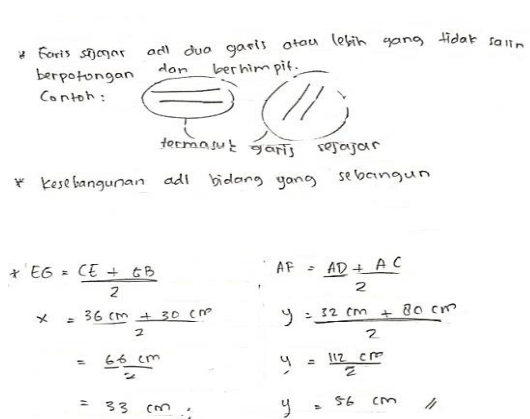 * Garis sejajar adl dua garis atau lebih yang tidak salin
berpotongan dan berhimpit.
Contoh :
termasuk garis sejajar
* kesebangunan adl bidang yang sebangun
* EG = CE + GB / 2
x = 36 cm + 30 cm / 2
= 66 cm / 2
= 33 cm
AF = AD + AC / 2
y = 32 cm + 80 cm / 2
y = 112 cm / 2
y = 56 cm //